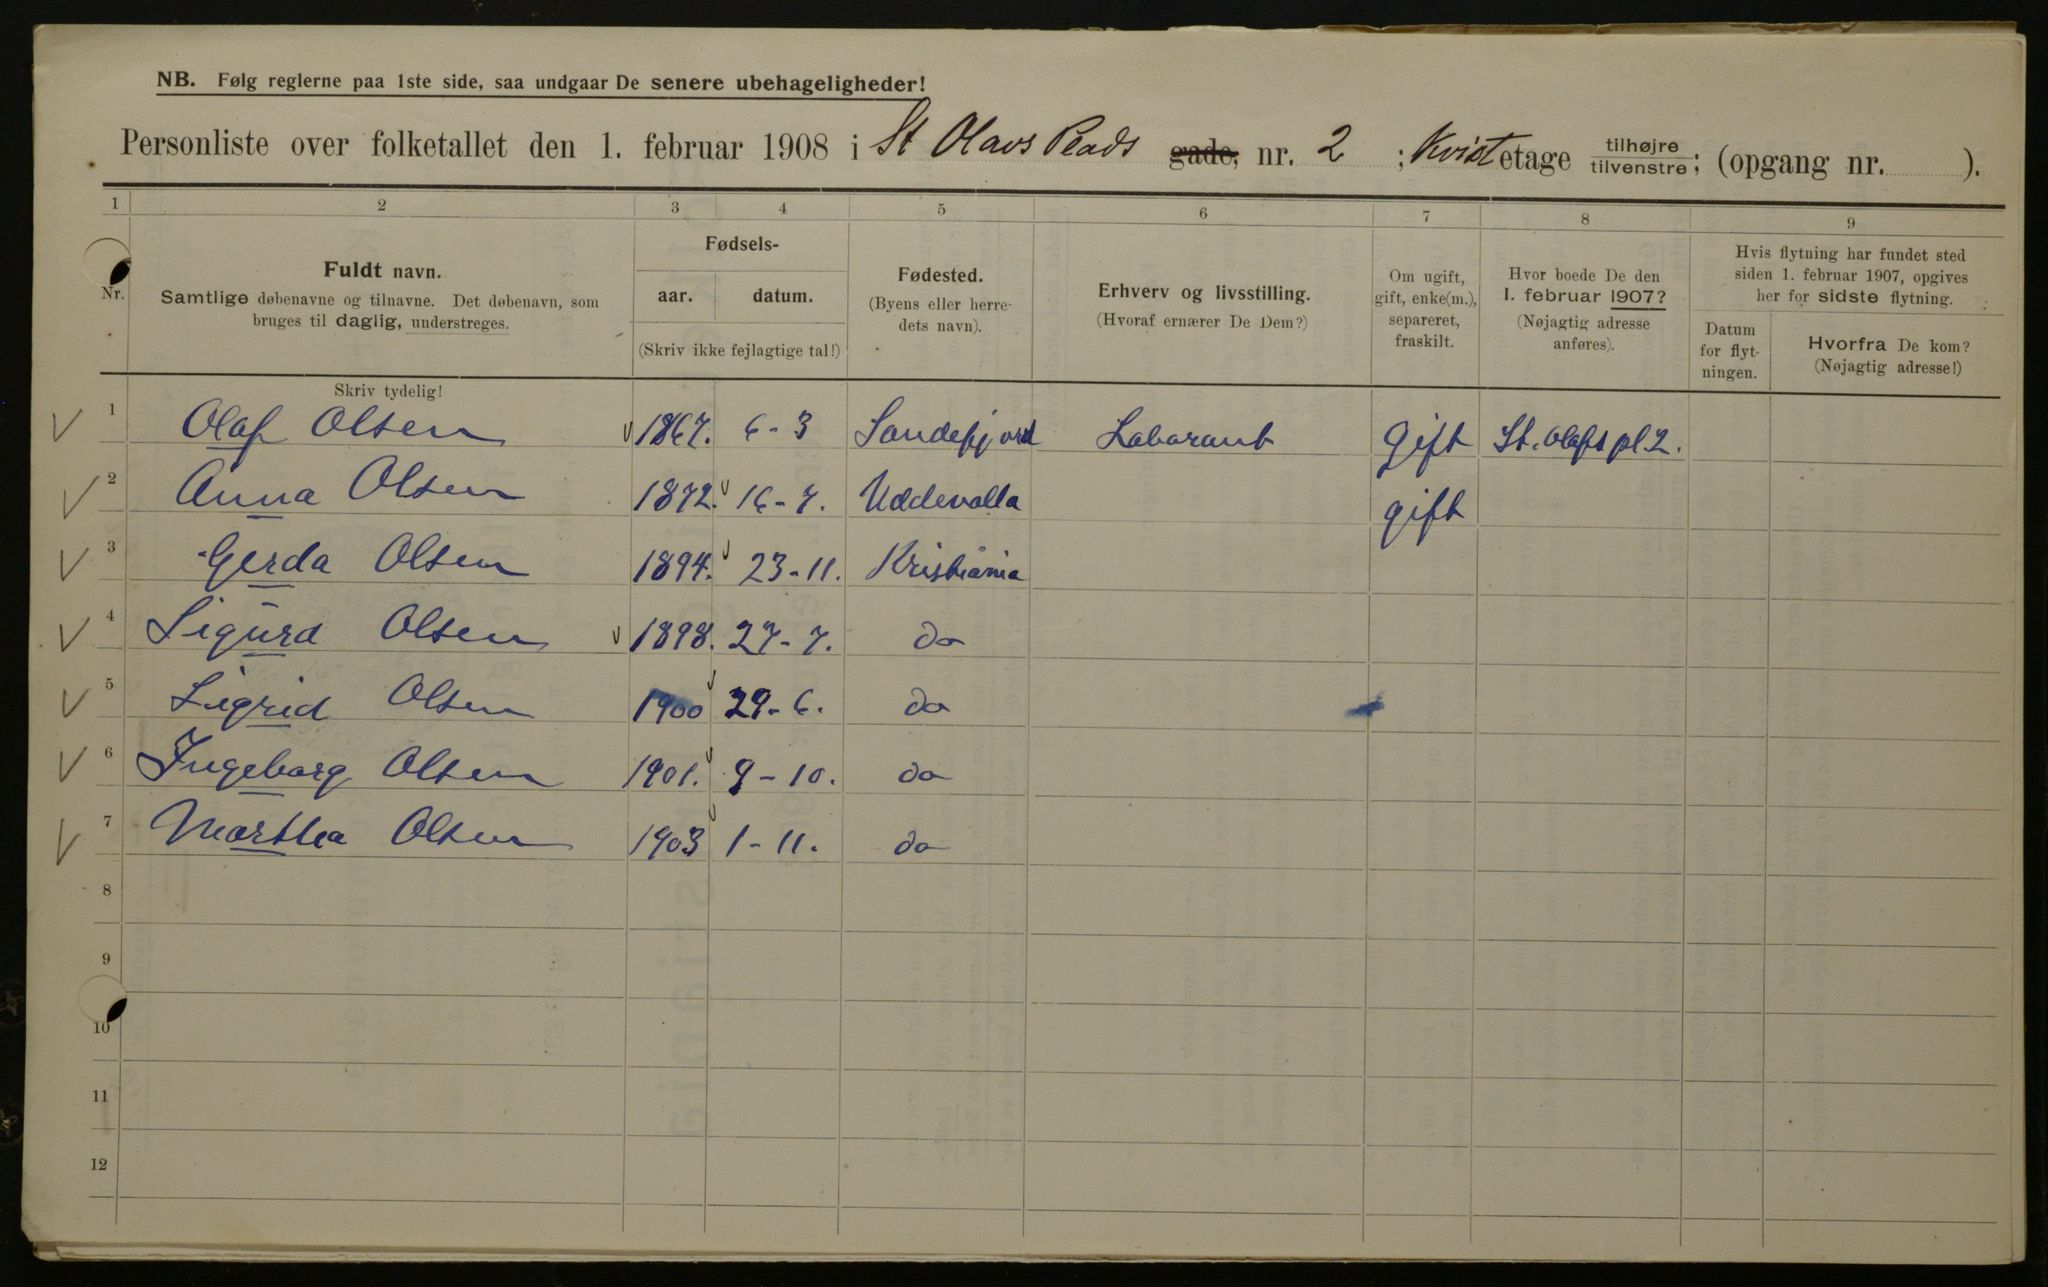 NB. Følg reglerne paa 1ste side, saa undgaar De senere ubehageligheder!
Personliste over folketallet den 1. februar 1908 i St Olavs Plads gade, nr. 2 ; Kvist etage tilhøjre tilvenstre; (opgang nr. ).
1 2 3 4 5 6 7 8 9
Nr. Fuldt navn. Samtlige døbenavne og tilnavne. Det døbenavn, som bruges til daglig, understreges.
Fødsels- aar. datum. (Skriv ikke fejlagtige tal!)
Fødested. (Byens eller herredets navn).
Erhverv og livsstilling. (Hvoraf ernærer De Dem?)
Om ugift, gift, enke(m.), separeret, fraskilt.
Hvor boede De den 1. februar 1907? (Nøjagtig adresse anføres).
Hvis flytning har fundet sted siden 1. februar 1907, opgives her for sidste flytning.
Datum for flytningen. Hvorfra De kom? (Nøjagtig adresse!)
Skriv tydelig!
1 Olaf Olsen 1867. 6-3 Sandefjord Laborant gift St. Olafs pl 2.
2 Anna Olsen 1872. 16-7. Uddevalla gift
3 Gerda Olsen 1894. 23-11. Kristiania
4 Sigurd Olsen 1898. 27-7. do
5 Sigrid Olsen 1900 29-6. do
6 Ingeborg Olsen 1901. 9-10. do
7 Martha Olsen 1903 1-11. do
8
9
10
11
12